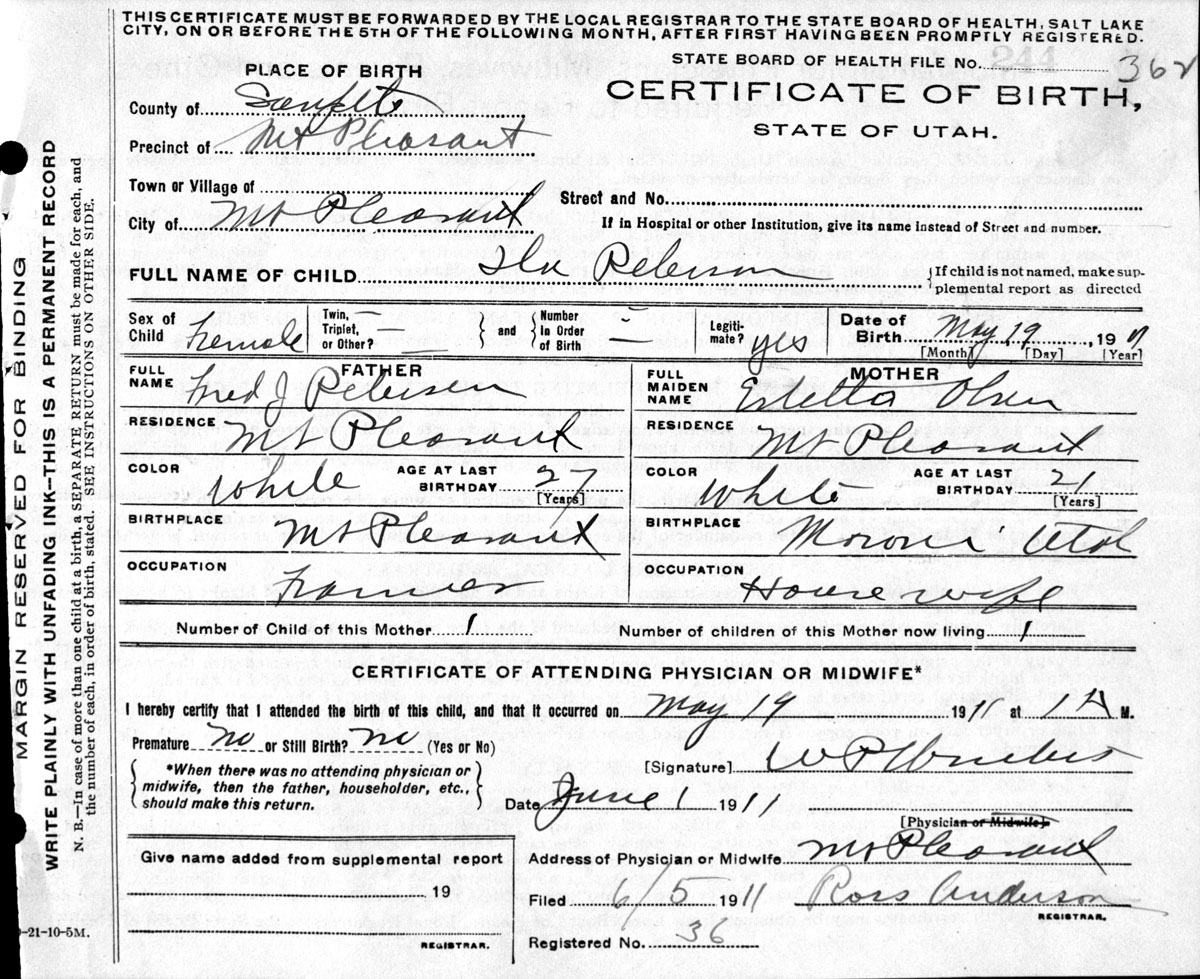 THIS CERTIFICATE MUST BE FORWARDED BY THE LOCAL REGISTRAR TO THE STATE BOARD OF HEALTH, SALT LAKE
CITY, ON OR BEFORE THE 5TH OF THE FOLLOWING MONTH, AFTER FIRST HAVING BEEN PROMPTLY REGISTERED.
STATE BOARD OF HEALTH FILE No. 362
PLACE OF BIRTH
CERTIFICATE OF BIRTH,
STATE OF UTAH.
County of Sanpete
Precinct of Mt Pleasant
Town or Village of
Street and No.
City of Mt Pleasant
If in Hospital or other Institution, give its name instead of Street and number.
FULL NAME OF CHILD Ila Peterson
{If child is not named, make sup-
plemental report as directed
Sex of Child Female
Twin, Triplet, or Other? —
and Number In Order of Birth –
Legiti-mate? yes
Date of Birth May 19, 1911
[Month] [Day] [Year]
FATHER
FULL NAME Fred J Peterson
RESIDENCE Mt Pleasant
COLOR White AGE AT LAST BIRTHDAY 21 [Years]
BIRTHPLACE Mt Pleasant
OCCUPATION Farmer
MOTHER
FULL MAIDEN NAME Estella Olsen
RESIDENCE Mt Pleasant
COLOR White AGE AT LAST BIRTHDAY 21 [Years]
BIRTHPLACE Moroni Utah
OCCUPATION Housewife
Number of Child of this Mother 1
Number of children of this Mother now living 1
CERTIFICATE OF ATTENDING PHYSICIAN OR MIDWIFE*
I hereby certify that I attended the birth of this child, and that it occurred on May 19 1911 at 1 A M.
Premature no or Still Birth? no (Yes or No)
*When there was no attending physician or
midwife, then the father, householder, etc.,
should make this return.
[Signature] W P
Date June 1 1911
[Physician or Midwife]
Address of Physician or Midwife Mt Pleasant
Give name added from supplemental report
19
REGISTRAR.
Filed 6/5 1911 Ross Anderson
REGISTRAR.
Registered No. 36
-21-10-5M.
MARGIN RESERVED FOR BINDING
WRITE PLAINLY WITH UNFADING INK—THIS IS A PERMANENT RECORD
N. B.—In case of more than one child at a birth, a SEPARATE RETURN must be made for each, and
the number of each, in order of birth, stated. SEE INSTRUCTIONS ON OTHER SIDE.